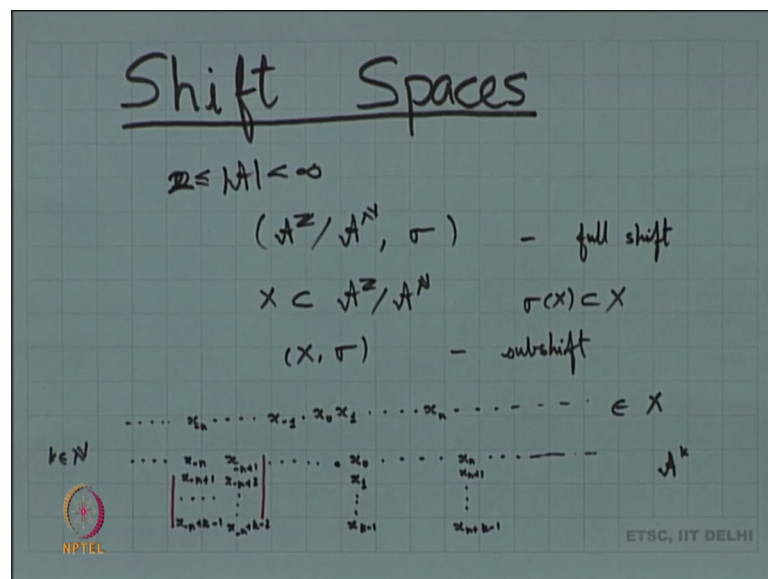 Shift Spaces
2 ≤ |A| < ∞
(A^Z / A^N, σ) - full shift
X ⊂ A^Z / A^N σ(X) ⊂ X
(X, σ) - subshift
..... x_n .... x_-1 . x_0 x_1 ..... x_n ........ ∈ X
k∈N ..... x_-n x_-n+1 ..... . x_0 ..... x_n ........ A^k
x_-n+1 x_-n+2 x_1 x_n+1
..... ⋮ ⋮ ⋮
x_-n+k-1 x_-n+k-2 x_k-1 x_n+k-1
NPTEL
ETSC, IIT DELHI